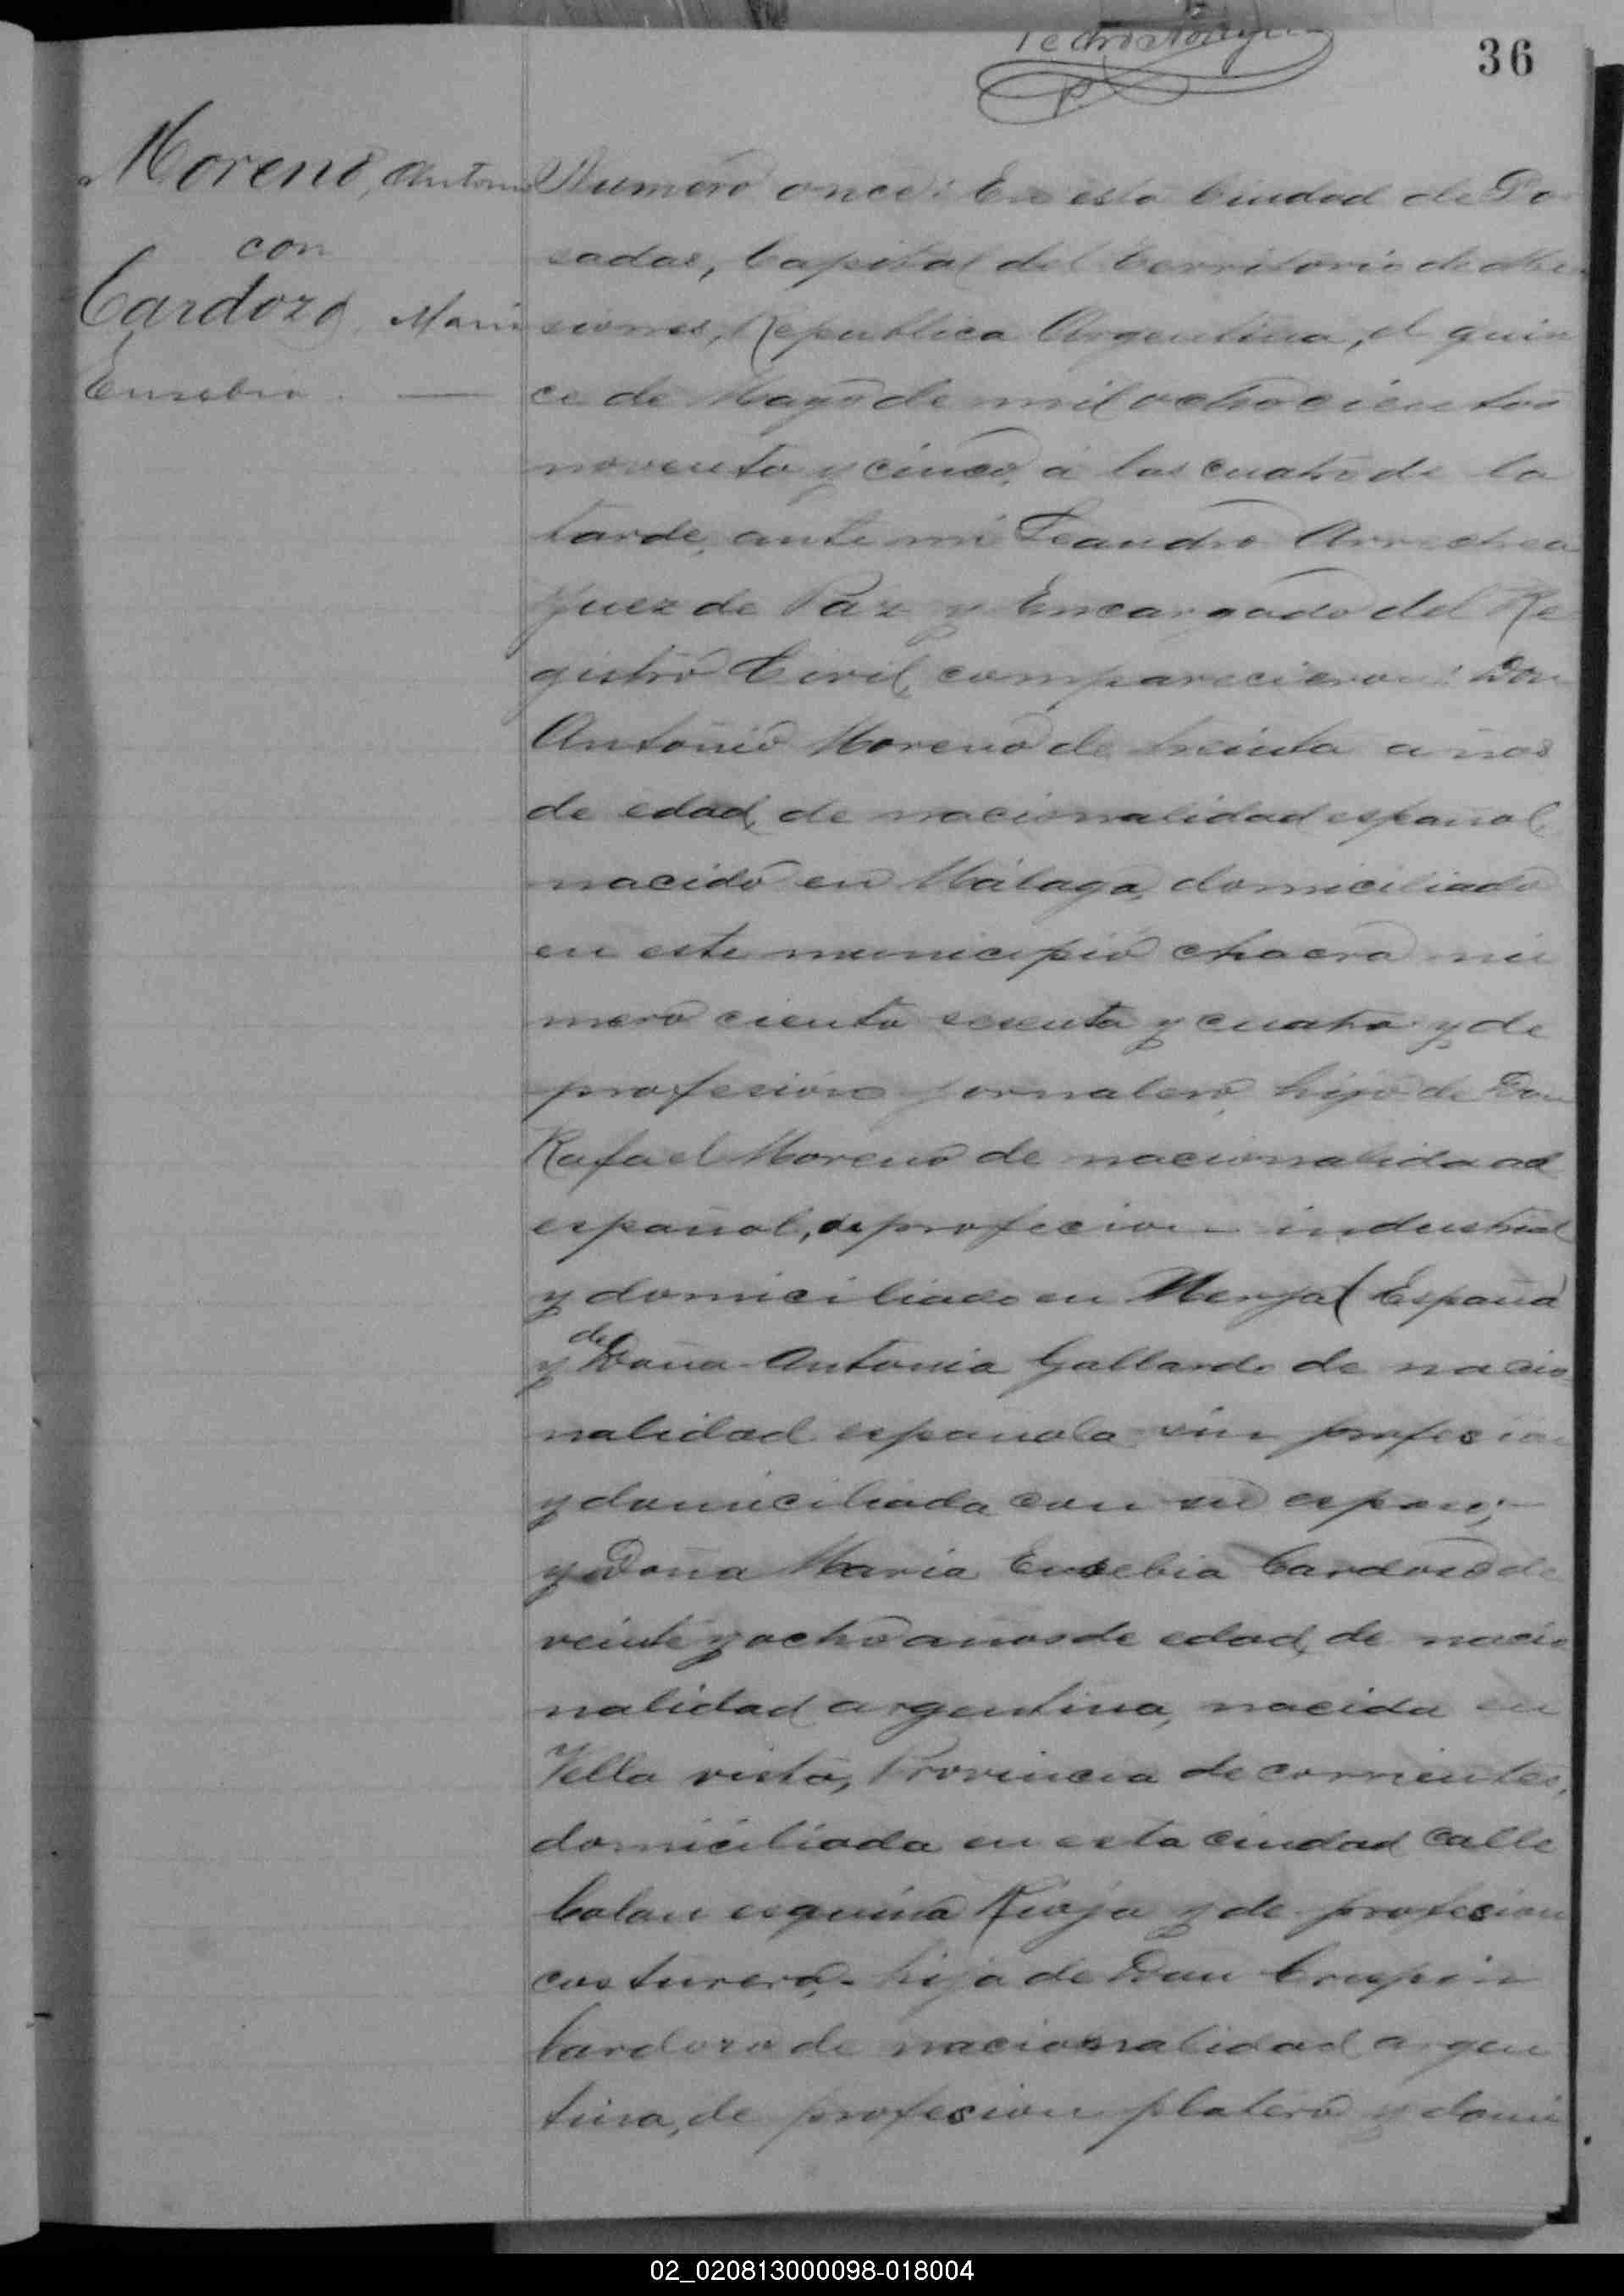 36
Moreno, Antonio
con
Cardozo, Maria
Eusebia. —
Numero once: En esta Ciudad de Po
sadas, Capital del Territorio de Mi
siones, Republica Argentina, el quin
ce de Mayo de mil ochocientos
noventa y cinco, á las cuatro de la
tarde, ante mi Leandro Arrechea
Juez de Paz y Encargado del Re
gistro Civil, comparecieron: Don
Antonio Moreno de treinta años
de edad, de nacionalidad español,
nacido en Málaga, domiciliado
en este municipio chacra nú
mero ciento sesenta y cuatro y de
profesión jornalero, hijo de Don
Rafael Moreno de nacionalidaad
español, de profecion industrial
y domiciliado en (España)
y de Doña Antonia Gallardo de nacio
nalidad española sin profesion
y domiciliada con su esposo;—
y Doña Maria Eusebia Cardoso de
veinte y ocho años de edad, de nacio
nalidad argentina, nacida en
Vella vista, Provincia de corrientes,
domiciliada en esta ciudad calle
Colon esquina Rioja y de profesion
costurera,- hija de Don Crispin
Cardozo de nacionalidad argen
tina, de profesion platero y domi
02_020813000098-018004